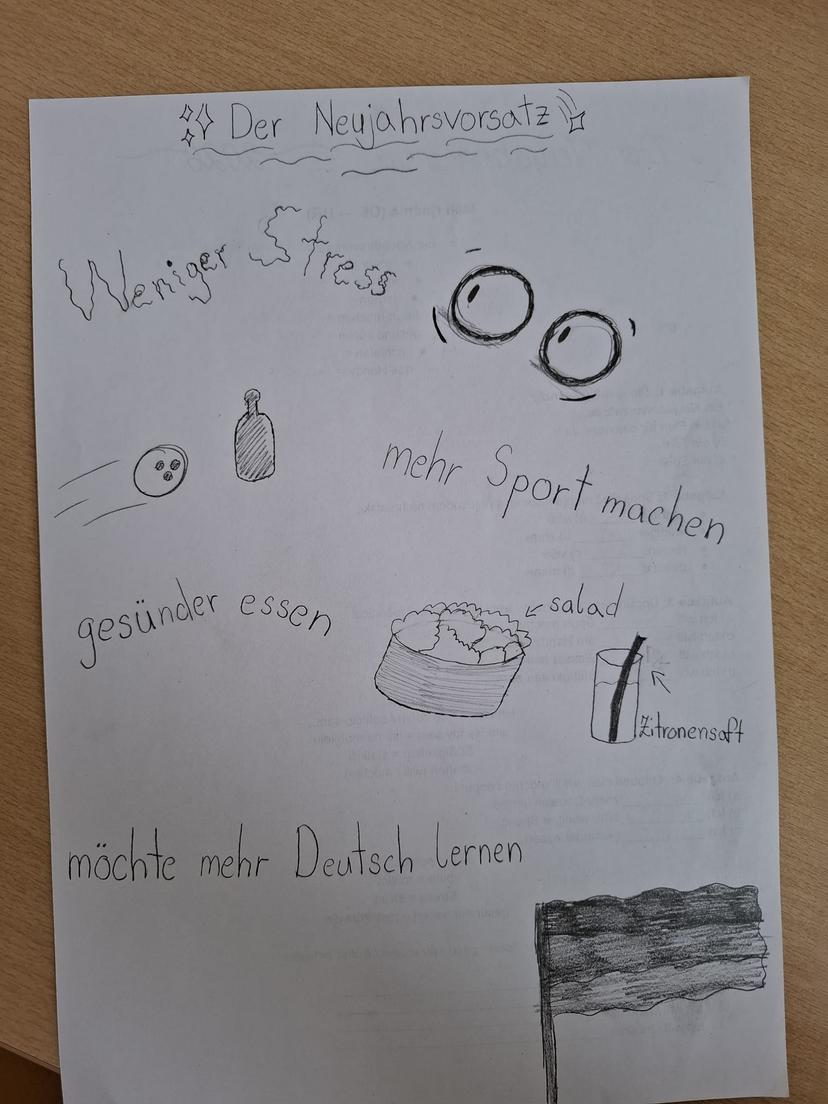 Der Neujahrsvorsatz
Weniger Stress
mehr Sport machen
gesünder essen
salad
Zitronensaft
möchte mehr Deutsch lernen